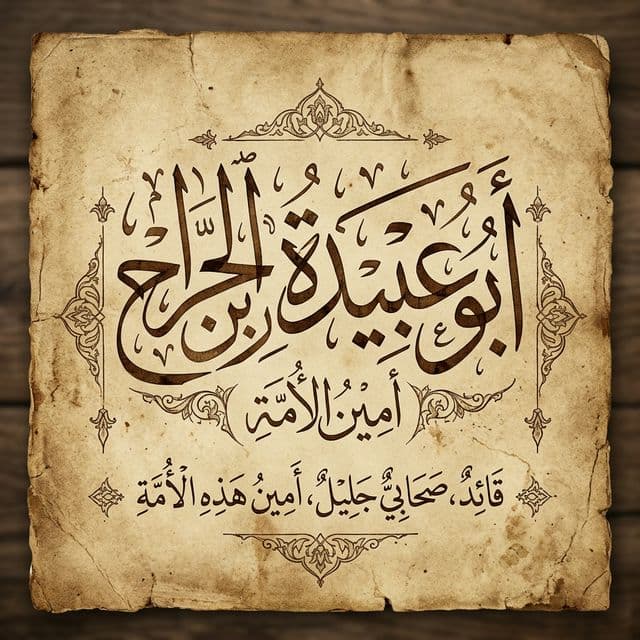 أَبُو عُبَيْدَةُ بِن الْجَرَّاحْ
أَمِيْنُ الأُمَّةِ
قَائِدٌ، صَحَابِيٌّ جَلِيْلٌ، أَمِينُ هَذِهِ الْأُمَّةِ